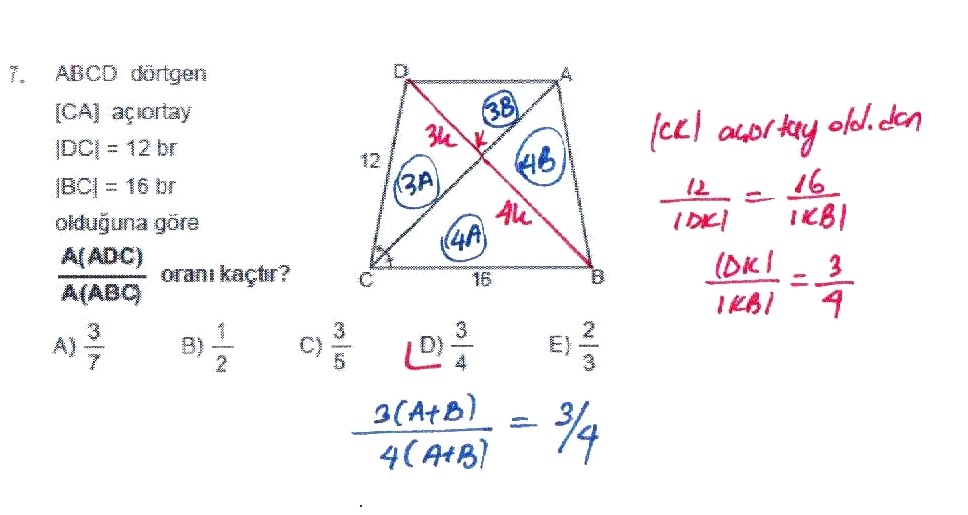 7. ABCD dörtgen
[CA] açıortay
|DC| = 12 br
|BC| = 16 br
olduğuna göre
A(ADC)
A(ABC)
oranı kaçtır?
A) 3/7 B) 1/2 C) 3/5 D) 3/4 E) 2/3
D A
3B
3k K
12 4B
3A
4k
4A
C 16 B
|CK| açıortay old.dan
12/|DK| = 16/|KB|
|DK|/|KB| = 3/4
3(A+B)/4(A+B) = 3/4